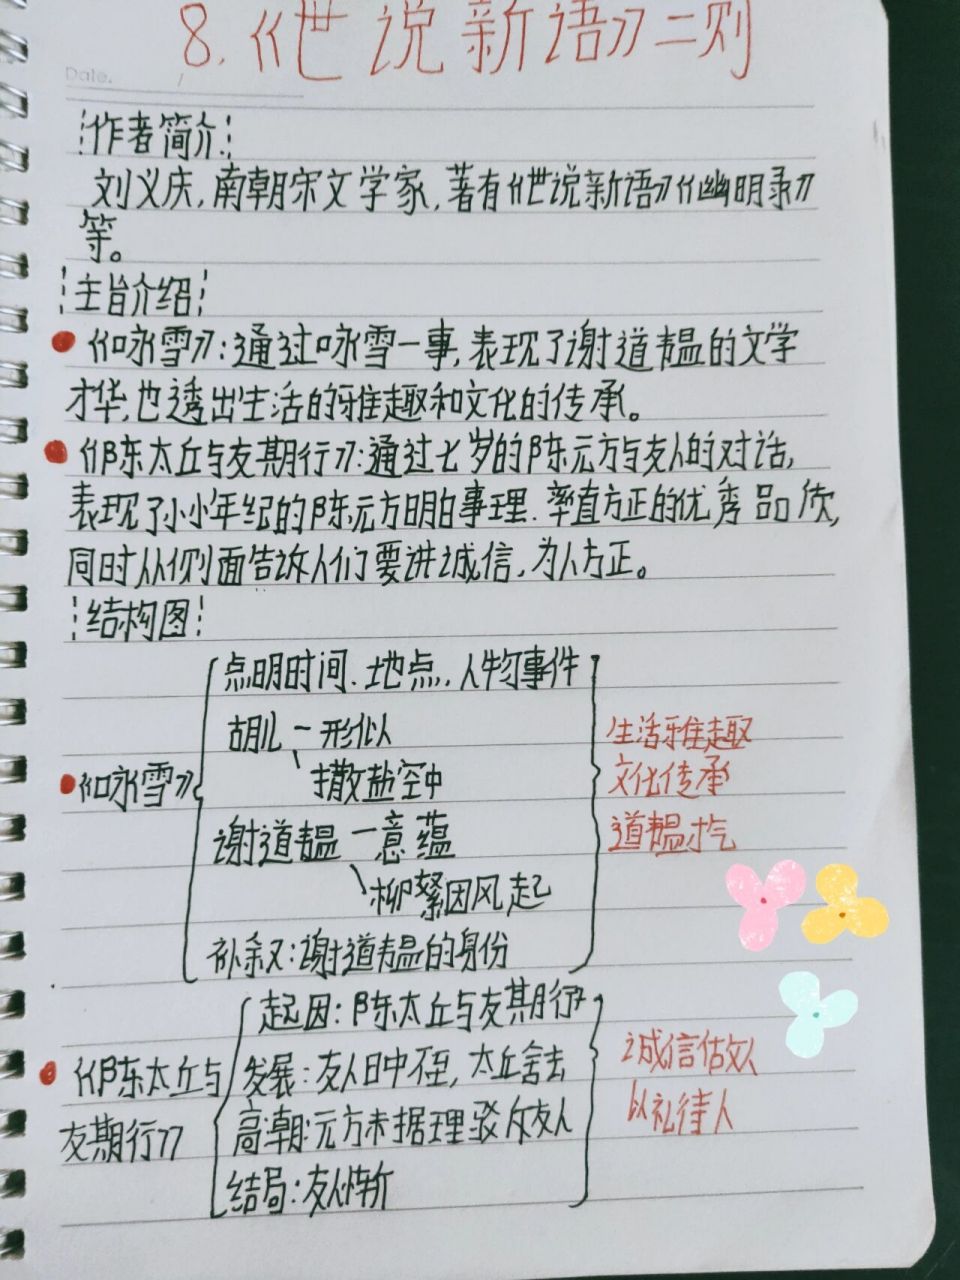 8.《世说新语》二则
Date.
作者简介
刘义庆,南朝宋文学家,著有《世说新语》《幽明录》
等。
主旨介绍
《咏雪》:通过咏雪一事,表现了谢道韫的文学
才华,也透出生活的雅趣和文化的传承。
《陈太丘与友期行》:通过七岁的陈元方与友人的对话,
表现了小小年纪的陈元方明白事理、率直方正的优秀品质,
同时从侧面告诉人们要讲诚信,为人方正。
结构图
点明时间、地点,人物事件
胡儿－形似
撒盐空中
《咏雪》
谢道韫－意蕴
柳絮因风起
补叙:谢道韫的身份
生活雅趣
文化传承
道韫才气
《陈太丘与
友期行》
起因:陈太丘与友期行
发展:友人日中不至,太丘舍去
高潮:元方未据理驳斥友人
结局:友人惭
诚信做人
以礼待人